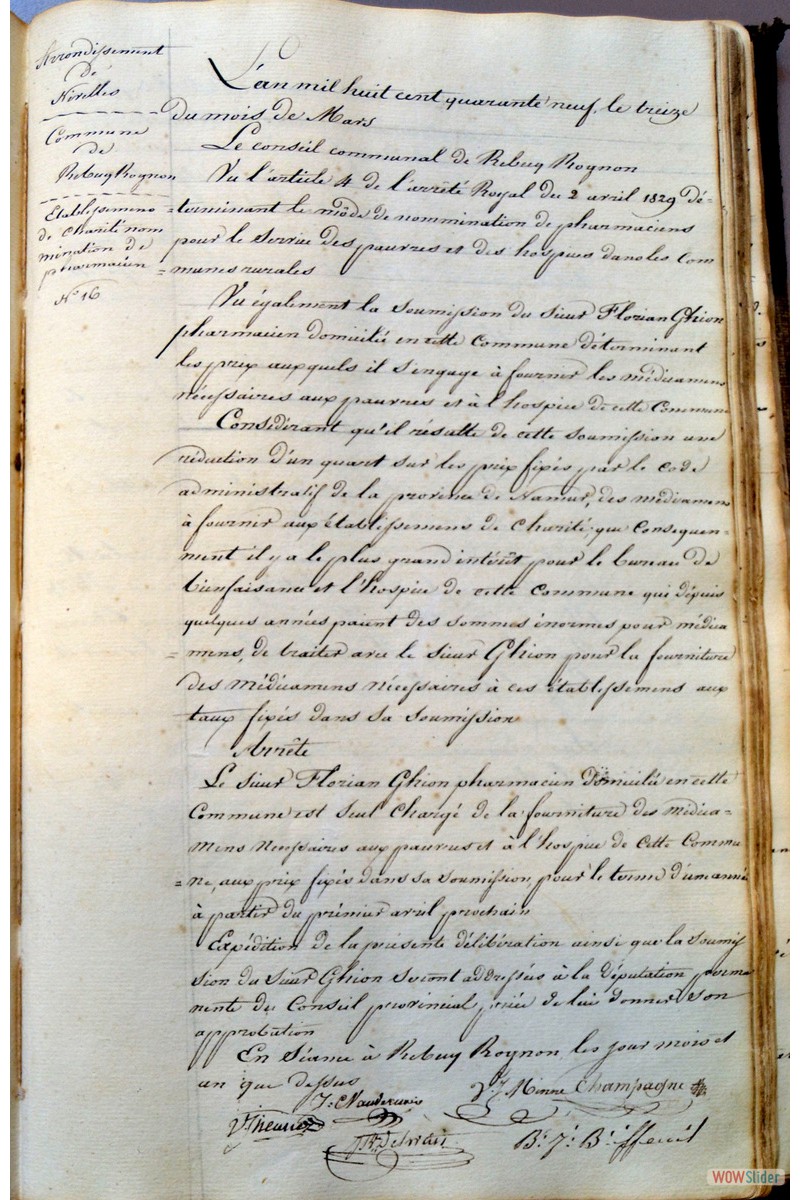 Arrondissement
de
Nivelles
Commune
de
Rebecq Rognon
Etablissemens
de charité nom
mination de
pharmacien
N° 16
L'an mil huit cent quarante neuf, le treize
du mois de Mars
Le conseil communal de Rebecq Rognon
Vu l'article 4 de l'arrêté Royal du 2 avril 1829 dé-
=terminant le môde de nommination de pharmaciens
pour le service des pauvres et des hospices dans les com
=munes rurales
Vu également la soumission du sieur Florian Ghion
pharmacien domicilié en cette Commune déterminant
les prix auxquels il s'engage à fournir les médicamens
nécessaires aux pauvres et à l'hospice de cette Commune
Considérant qu'il résulte de cette soumission une
réduction d'un quart sur les prix fixés par le code
administratif de la province de Namur, des médicamens
à fournir aux établissemens de charité; que consequem-
ment il y a le plus grand intérêt pour le bureau de
bienfaisance et l'hospice de cette commune qui dépuis
quelques années paient des sommes énormes pour médica
=mens, de traiter avec le sieur Ghion pour la fourniture
des médicamens nécessaires à ces établissemens aux
taux fixés dans sa soumission
Arrête
Le sieur Florian Ghion pharmacien domicilié en cette
Commune est seul chargé de la fourniture des médica=
mens necessaires aux pauvres et à l'hospice de cette Commu
=ne, aux prix fixés dans sa soumission, pour le terme d'une année
à partir du prémier avril prochain
Expédition de la présente délibération ainsi que la soumis
sion du sieur Ghion seront addressées à la députation perma
nente du Conseil provincial, priée de lui donner son
approbation
En séance à Rebecq Rognon les jour mois et
an que dessus
Champagne
WOWSlider